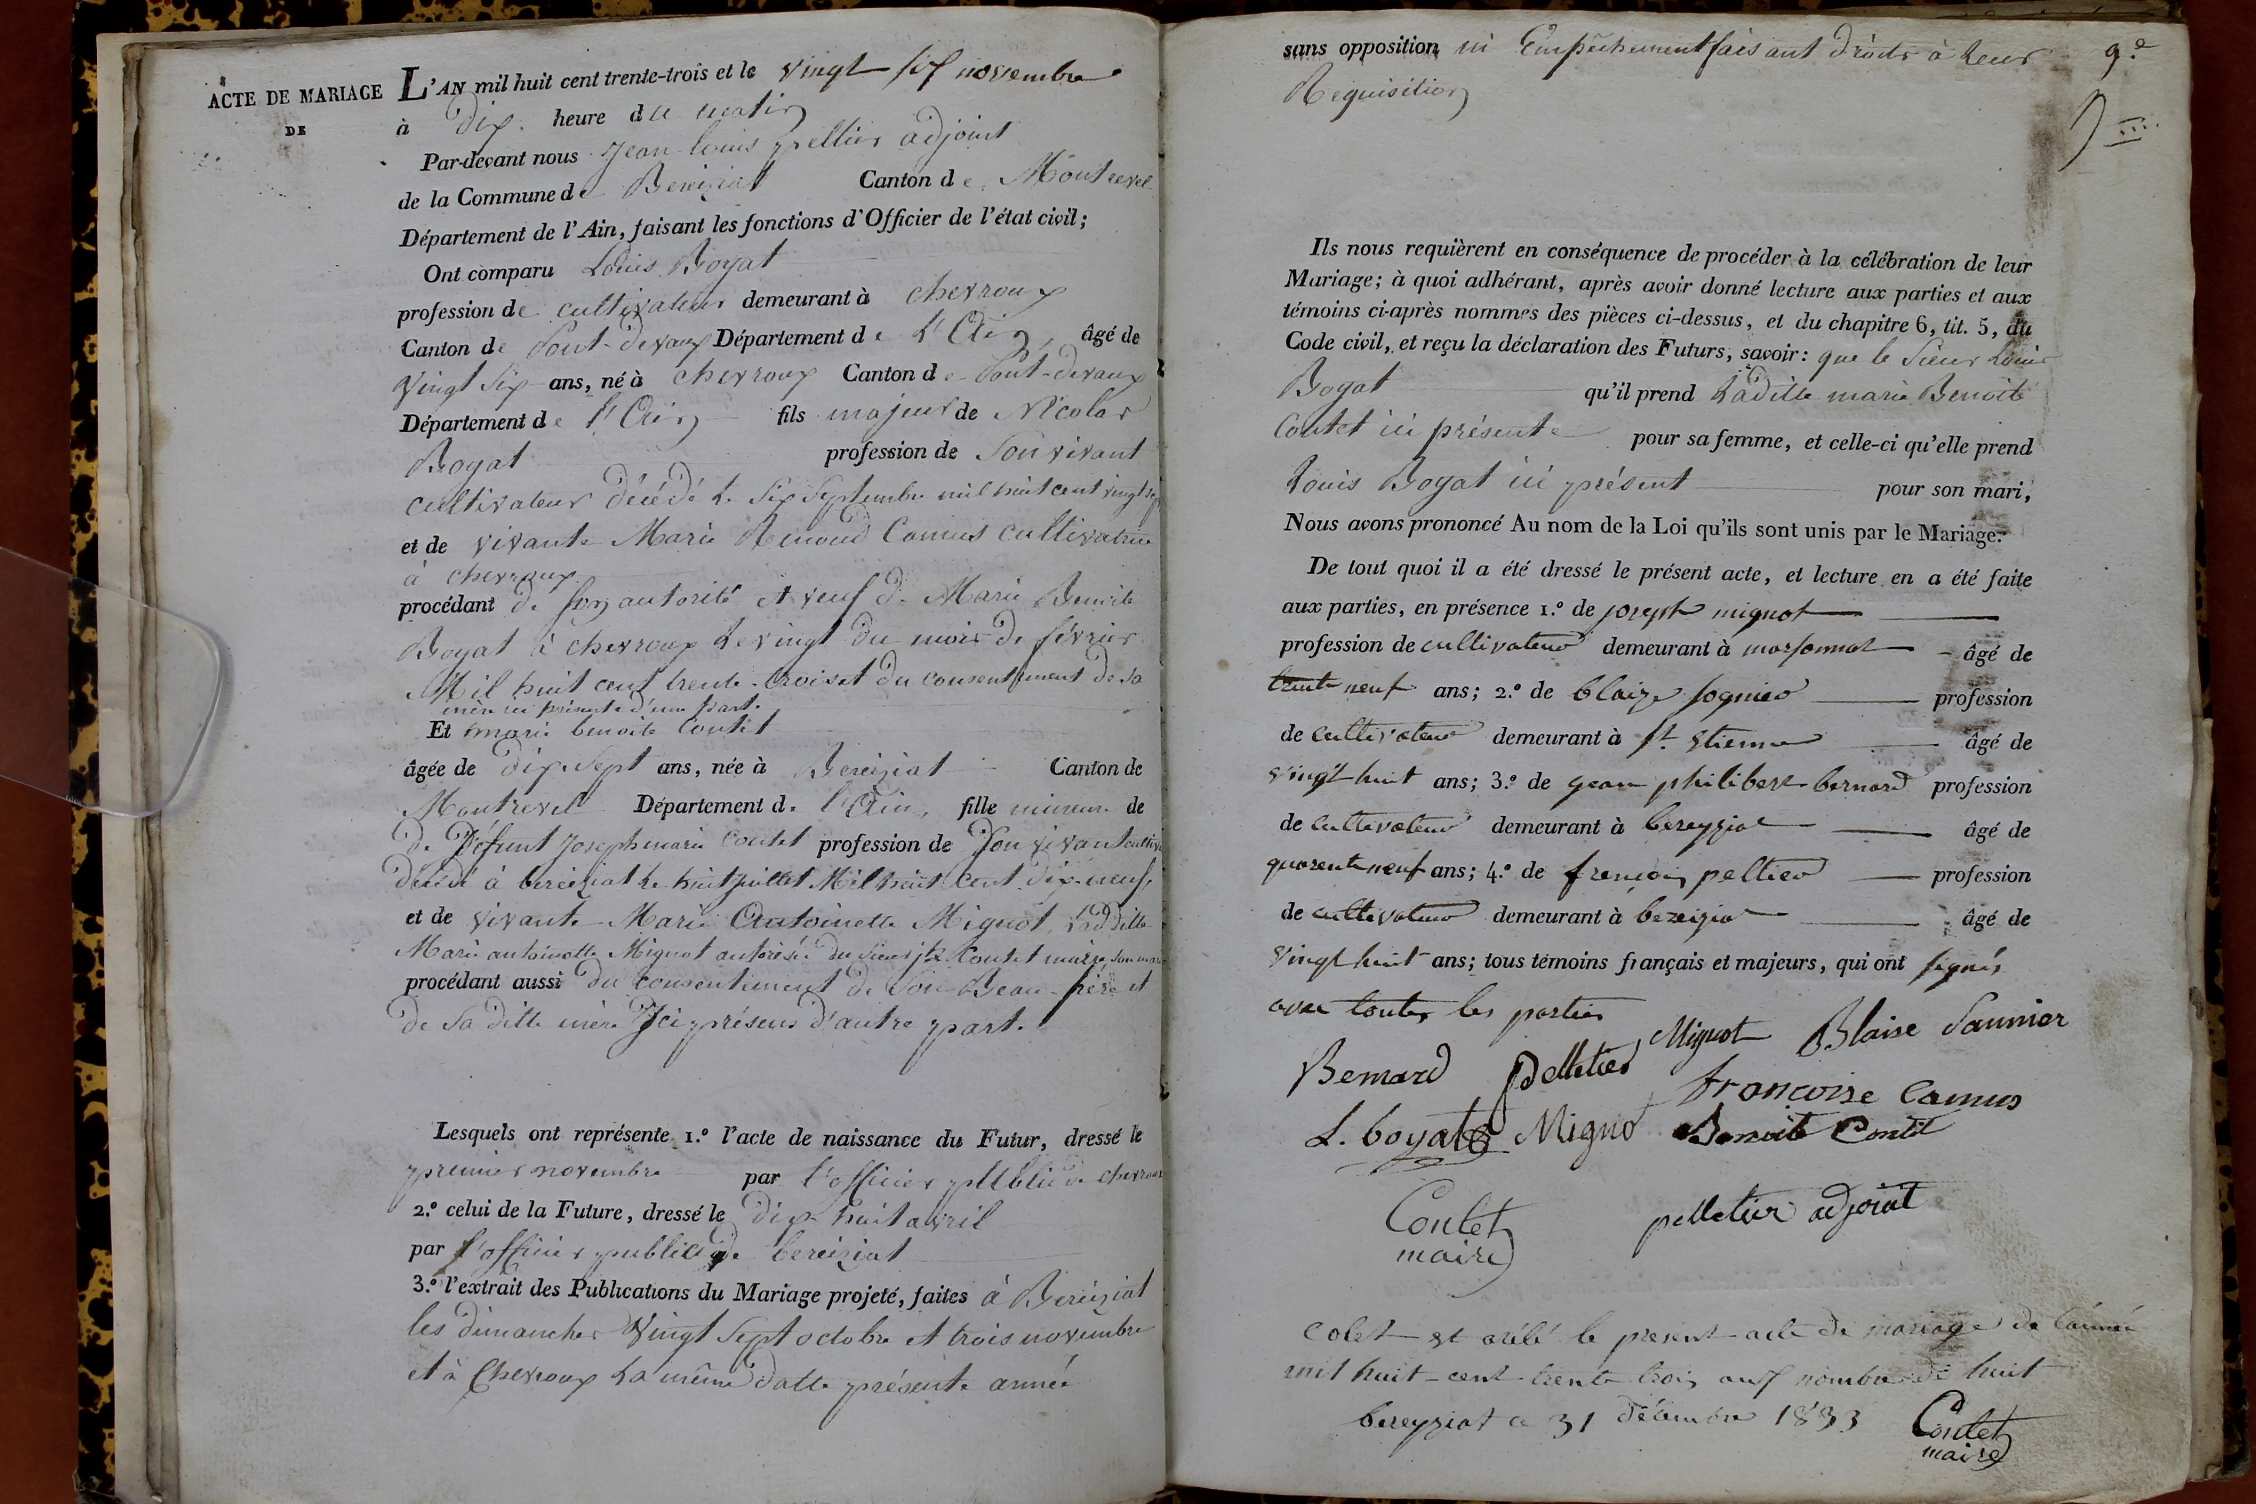 ACTE DE MARIAGE
DE
L'AN mil huit cent trente-trois et le vingt six novembre
à dix heure du matin
Par-devant nous Jean Louis peltier adjoint
de la Commune de Bereiziat Canton de Montrevel
Département de l'Ain, faisant les fonctions d'Officier de l'état civil;
Ont comparu Louis Boyat
profession de cultivateur demeurant à chevroux
Canton de Pont-devaux Département de L'Ain, âgé de
vingt six ans, né à chevroux Canton de Pont-devaux
Département de l'Ain fils majeur de Nicolas
Boyat profession de Son vivant
cultivateur décédé le six Septembre mil huit cent vingt
et de vivante Marie Renoud Camus cultivatrice
à chevroux
procédant de son autorité et veuf de Marie Benoite
Boyat à chevroux le vingt du mois de février
Mil huit cent trente-trois et du consentement de sa
mère ici présente d'une part.
Et marie benoite Contet
âgée de dix Sept ans, née à Bereiziat Canton de
Montrevel Département de l'Ain, fille mineure de
de Défunt Joseph marie Contet profession de Son vivant
décédé à bereiziat le huit juillet Mil huit cent dix-neuf,
et de vivante Marie Antoinette Mignot, Laditte
Marie antoinette Mignot autorisée du Sieur Contet maire son mari
procédant aussi du consentement de Son Beau-père et
de sa ditte mère Ici présens d'autre part.
Lesquels ont représente 1.º l'acte de naissance du Futur, dressé le
premier novembre par l'officier publics de chevroux
2.º celui de la Future, dressé le dix huit avril
par l'officier publics de bereiziat
3.º l'extrait des Publications du Mariage projeté, faites à Bereiziat
les dimanches vingt Sept octobre et trois novembre
et à Chevroux La même datte présente année
sans opposition ni Empêchement faisant droits à leur
Requisition
9.e
Ils nous requièrent en conséquence de procéder à la célébration de leur
Mariage; à quoi adhérant, après avoir donné lecture aux parties et aux
témoins ci-après nommés des pièces ci-dessus, et du chapitre 6, tit. 5, du
Code civil, et reçu la déclaration des Futurs, savoir: que le Sieur Louis
Boyat qu'il prend Laditte marie Benoite
Contet ici présente pour sa femme, et celle-ci qu'elle prend
Louis Boyat ici présent pour son mari,
Nous avons prononcé Au nom de la Loi qu'ils sont unis par le Mariage.
De tout quoi il a été dressé le présent acte, et lecture en a été faite
aux parties, en présence 1.º de joseph mignot
profession de cultivateur demeurant à marsonnat âgé de
trente neuf ans; 2.º de blaize sognier profession
de cultivateur demeurant à st. etienne âgé de
vingt huit ans; 3.º de jean philibert bernard profession
de cultivateur demeurant à bereyziat âgé de
quarente neuf ans; 4.º de françois peltier profession
de cultivateur demeurant à bereiziat âgé de
vingt huit ans; tous témoins français et majeurs, qui ont signés
avec toutes les parties
Mignot Blaise Saunier
Bernard pelletier francoise Camus
L. boyat Mignot Benoite Contet
Contet maire
pelletier adjoint
et arêté le present acte de mariage de l'année
mil huit-cent trente trois au nombre de huit
bereyziat ce 31 décembre 1833
Contet
maire